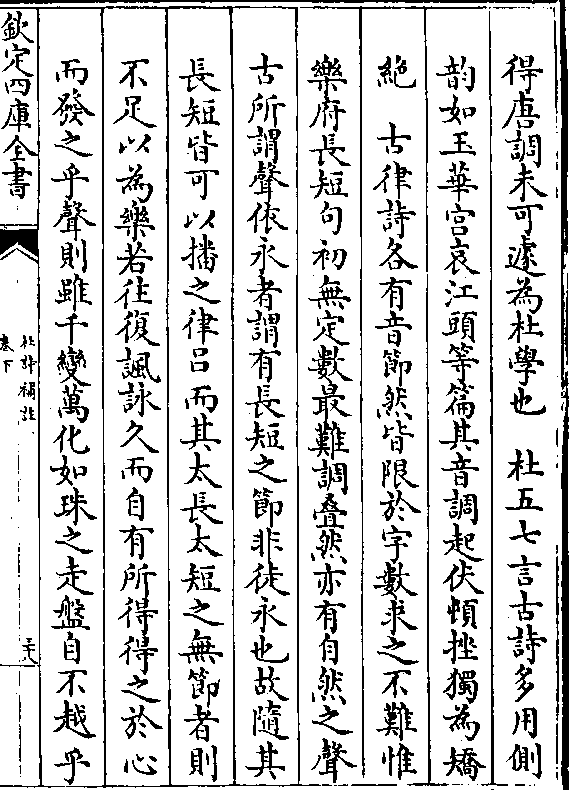 得唐調未可遽為杜學也　杜五七言古詩多用側
韵如玉華宫哀江頭等篇其音調起伏頓挫獨為矯
絶　古律詩各有音節然皆限於字數求之不難惟
樂府長短句初無定數最難調叠然亦有自然之聲
古所謂聲依永者謂有長短之節非徒永也故隨其
長短皆可以播之律吕而其太長太短之無節者則
不足以為樂若往復諷詠久而自有所得得之於心
而發之乎聲則雖千變萬化如珠之走盤自不越乎
欽定四庫全書
杜詩攟
卷下
二十八